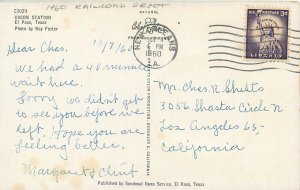 1960 RAILROAD DEPOT
C3029
UNION STATION
El Paso, Texas
Photo by Ray Foster
NATURAL
1960
U.S. POSTAGE 3¢
LIBERTY
Dear Ches. 10/7/60
We had a 40 minute
wait here.
Sorry we didn't get
to see you before we
left. Hope you are
feeling better.
Margaret & Clint
Mr. Ches. R. Shutts
3056 Shasta Circle N
Los Angeles 65-
California
Published by Sandoval News Service, El Paso, Texas